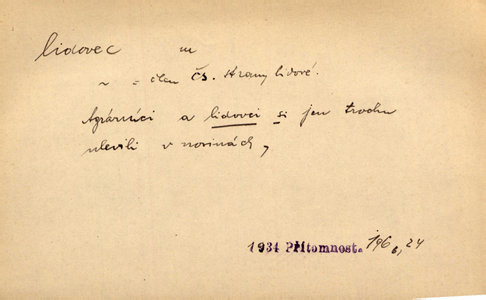 lidovec m
~ = člen čs. strany lidové.
Agrárníci a lidovci si jen trochu
ulevili v novinách,
1934 Přítomnost. 196